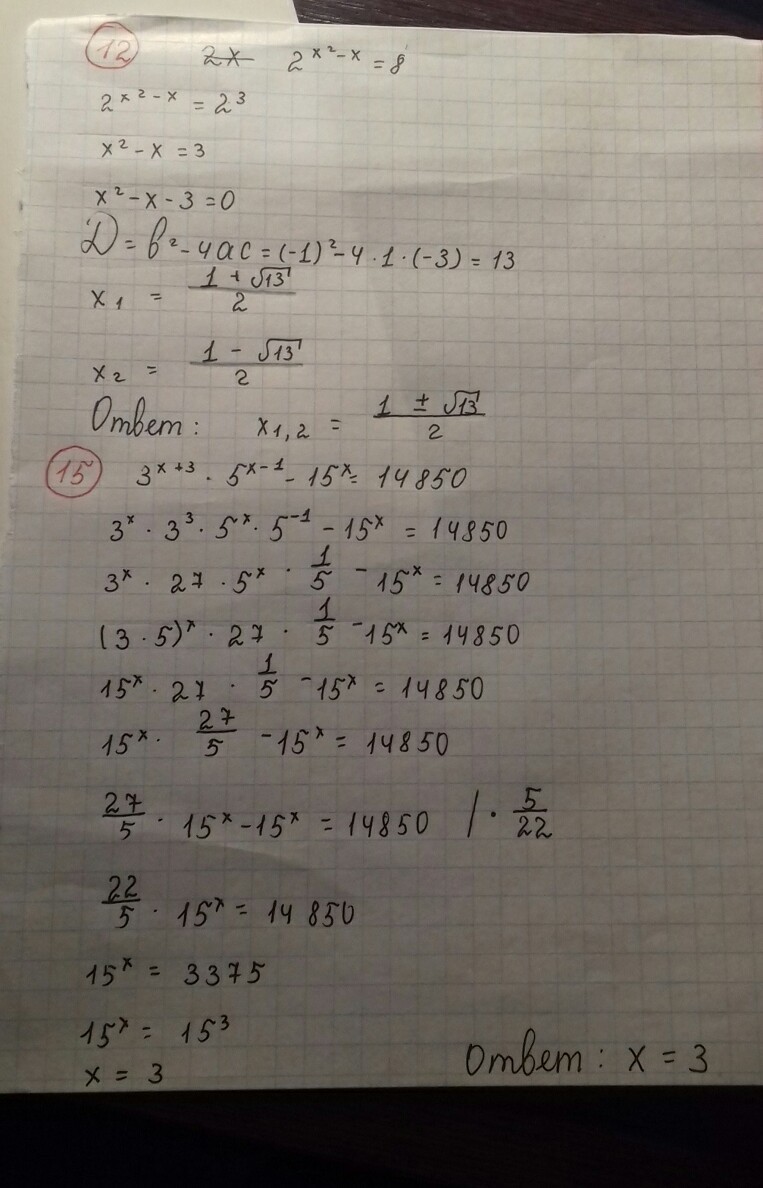 12 2x 2^{x²-x} = 8
2^{x²-x} = 2³
x² - x = 3
x² - x - 3 = 0
D = b² - 4ac = (-1)² - 4 · 1 · (-3) = 13
x₁ = (1 + √13)/2
x₂ = (1 - √13)/2
Ответ: x₁,₂ = (1 ± √13)/2
15 3^{x+3} · 5^{x-1} - 15^x = 14850
3^x · 3³ · 5^x · 5^{-1} - 15^x = 14850
3^x · 27 · 5^x · 1/5 - 15^x = 14850
(3 · 5)^x · 27 · 1/5 - 15^x = 14850
15^x · 27 · 1/5 - 15^x = 14850
15^x · 27/5 - 15^x = 14850
27/5 · 15^x - 15^x = 14850 / · 5/22
22/5 · 15^x = 14850
15^x = 3375
15^x = 15³
x = 3 Ответ: x = 3